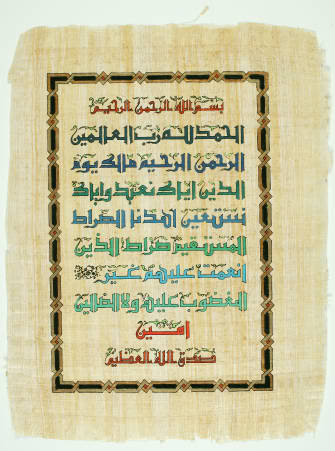 بسم الله الرحمن الرحيم
الحمد لله رب العالمين
الرحمن الرحيم مالك يوم
الدين اياك نعبد واياك
نستعين اهدنا الصراط
المستقيم صراط الذين
انعمت عليهم غير
المغضوب عليهم ولا الضالين
امين
صدق الله العظيم